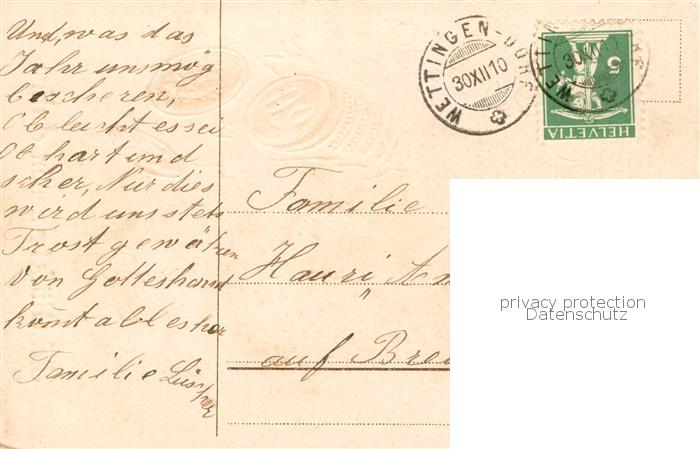 Und, was das
Jahr uns mög
bescheren,
Ob leicht es sei
Ob hart und
scher, Nur dies
wird uns stets
Trost gewären
Von Gotteshand
komt alles her
Familie Lüscher
WETTINGEN-DORF
30XII10
5
HELVETIA
Familie
Hauri, Am
auf Bre
privacy protection
Datenschutz